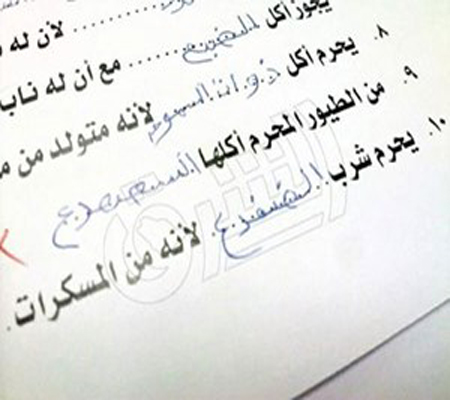 لأن له
يجوز أكل الضفدع ...... مع أن له ناب
٨. يحرم أكل ذوات السموم لأنه متولد من
٩. من الطيور المحرم أكلها الضفدع
١٠. يحرم شرب الضفدع. لأنه من المسكرات.